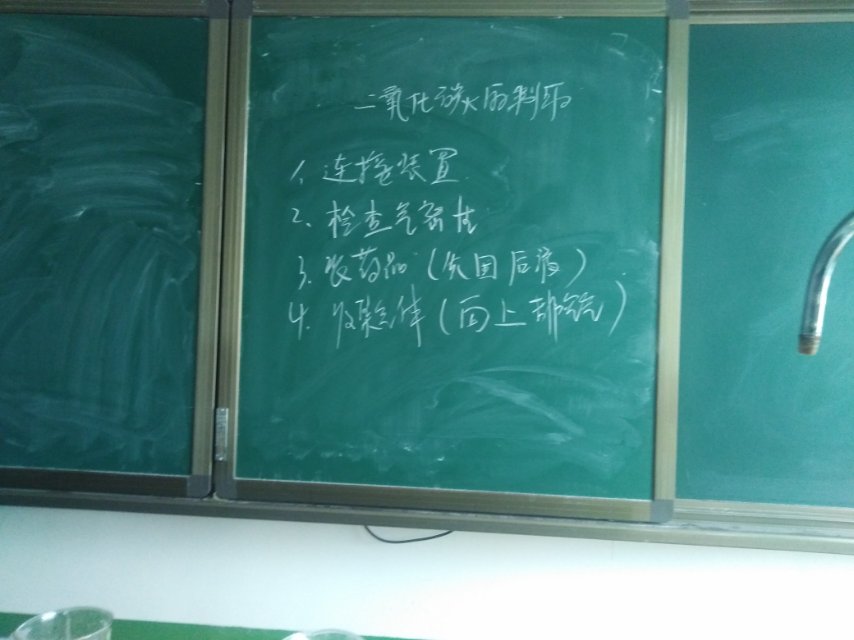 二氧化碳的制取
1. 连接装置
2. 检查气密性
3. 装药品（先固后液）
4. 收集气体（向上排空气）